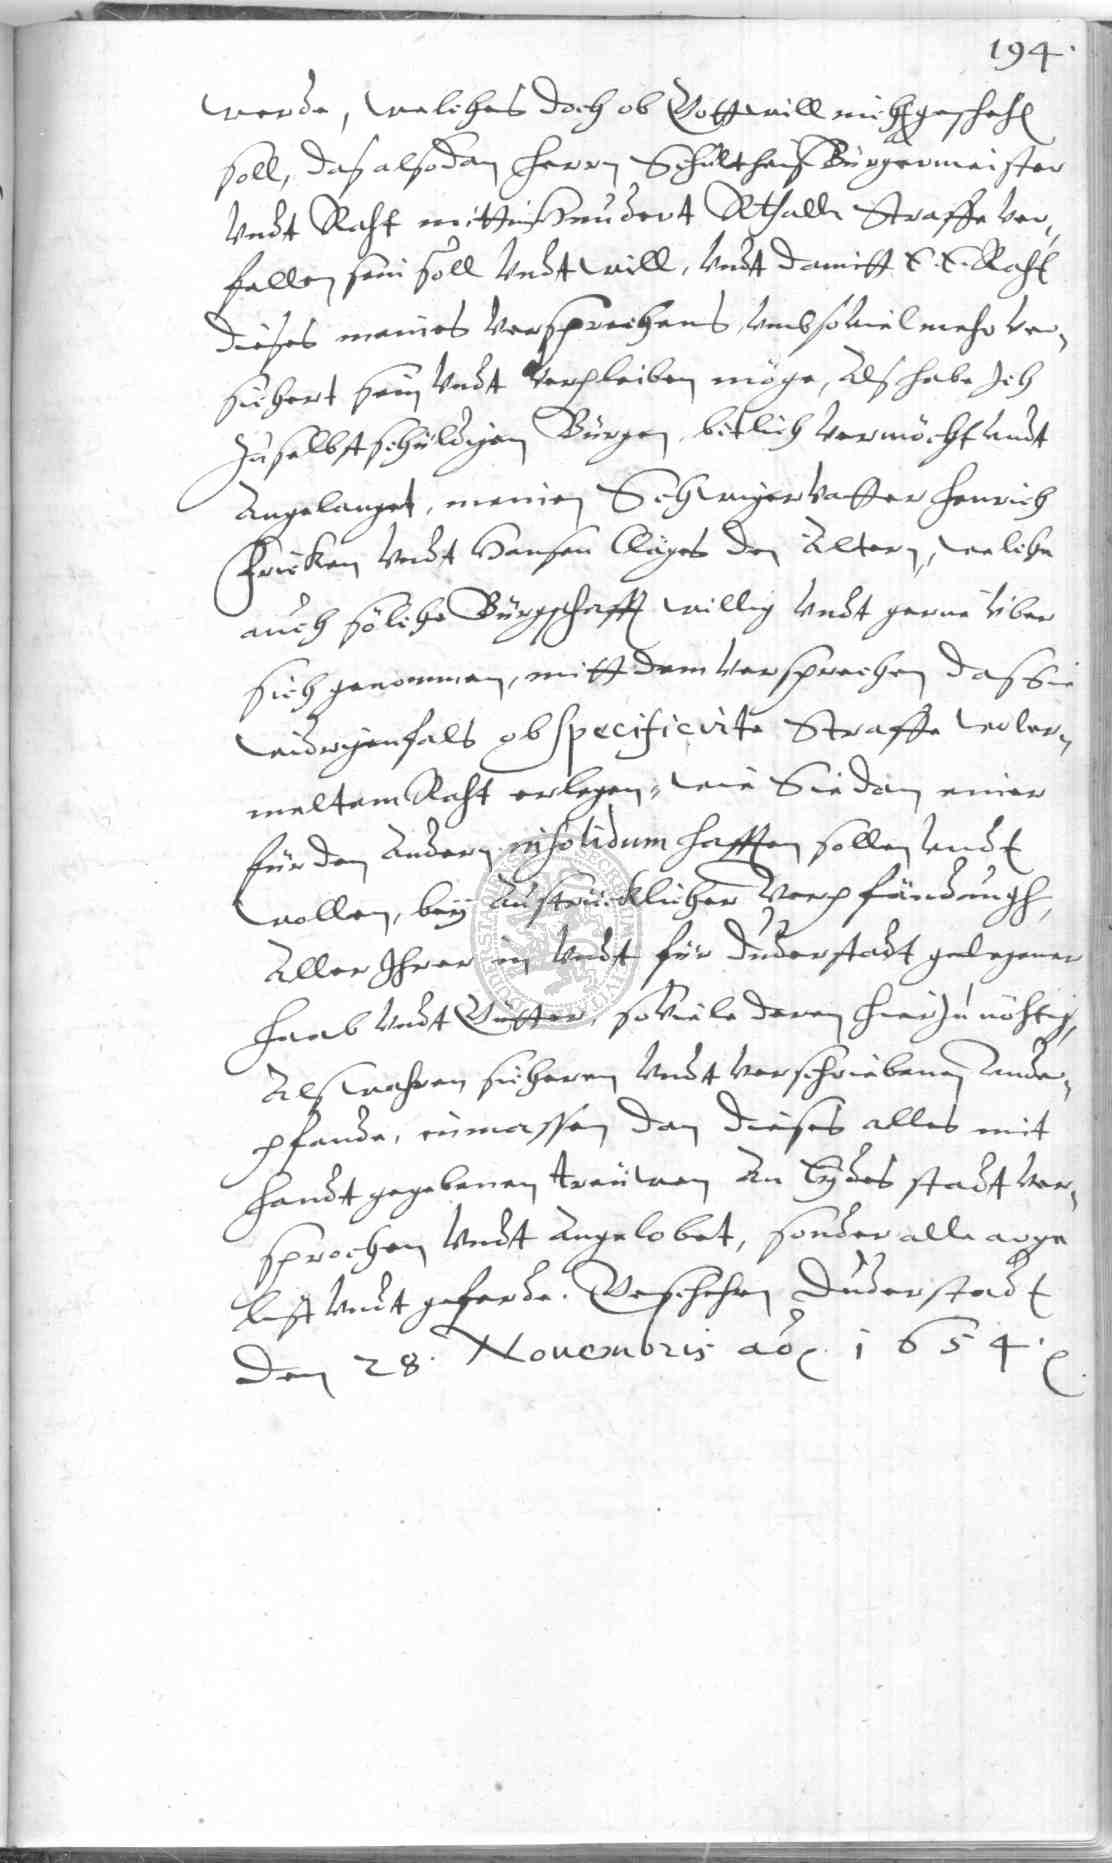 194.
werde, welches doch ob Gott will nicht gescheh
soll, das alsodan Herrn Schultheis Bürgermeister
Vndt Raht mitt Hundert Rthall. Straffe ver,,
fallen sein soll Vndt will, Vndt damitt E. E. Raht
dieses meines Versprechens vmb so viel mehr ver,,
sichert sein Vndt Verpleiben möge, Als habe Ich
zu selbstschüldigen Bürgen bitlich Vermöcht vndt
Angelanget, meinen Schwigervatter Henrich
Fricken Vndt Hansen Cläges den Ältern, welche
auch sölche Bürgschafft willig Vndt gerne vber
sich genommen, mitt dem Versprechen das Sie
widrigenfals obspecificirte Straffe wolerm,,
meltem Raht erlegen, wie Sie dan einer
für den Andern in solidum hafften sollen vndt
wollen, bey Austrücklicher Verpfändungh,
Aller Ihrer in Vndt für Duderstadt gelegener
Haab Vndt Gütter, so viele deren hierzu nöhtig,
Als wahren sicheren Vndt verschriebenen Vnder,,
pfande, inmassen dan dieses alles mit
handtgegebenen treuwen An Eydes stadt ver,,
sprochen Vndt Angelobet, sonder alle arge
list Vndt geferde. Geschehen Duderstadt
den 28. Novembris ao. 1654.